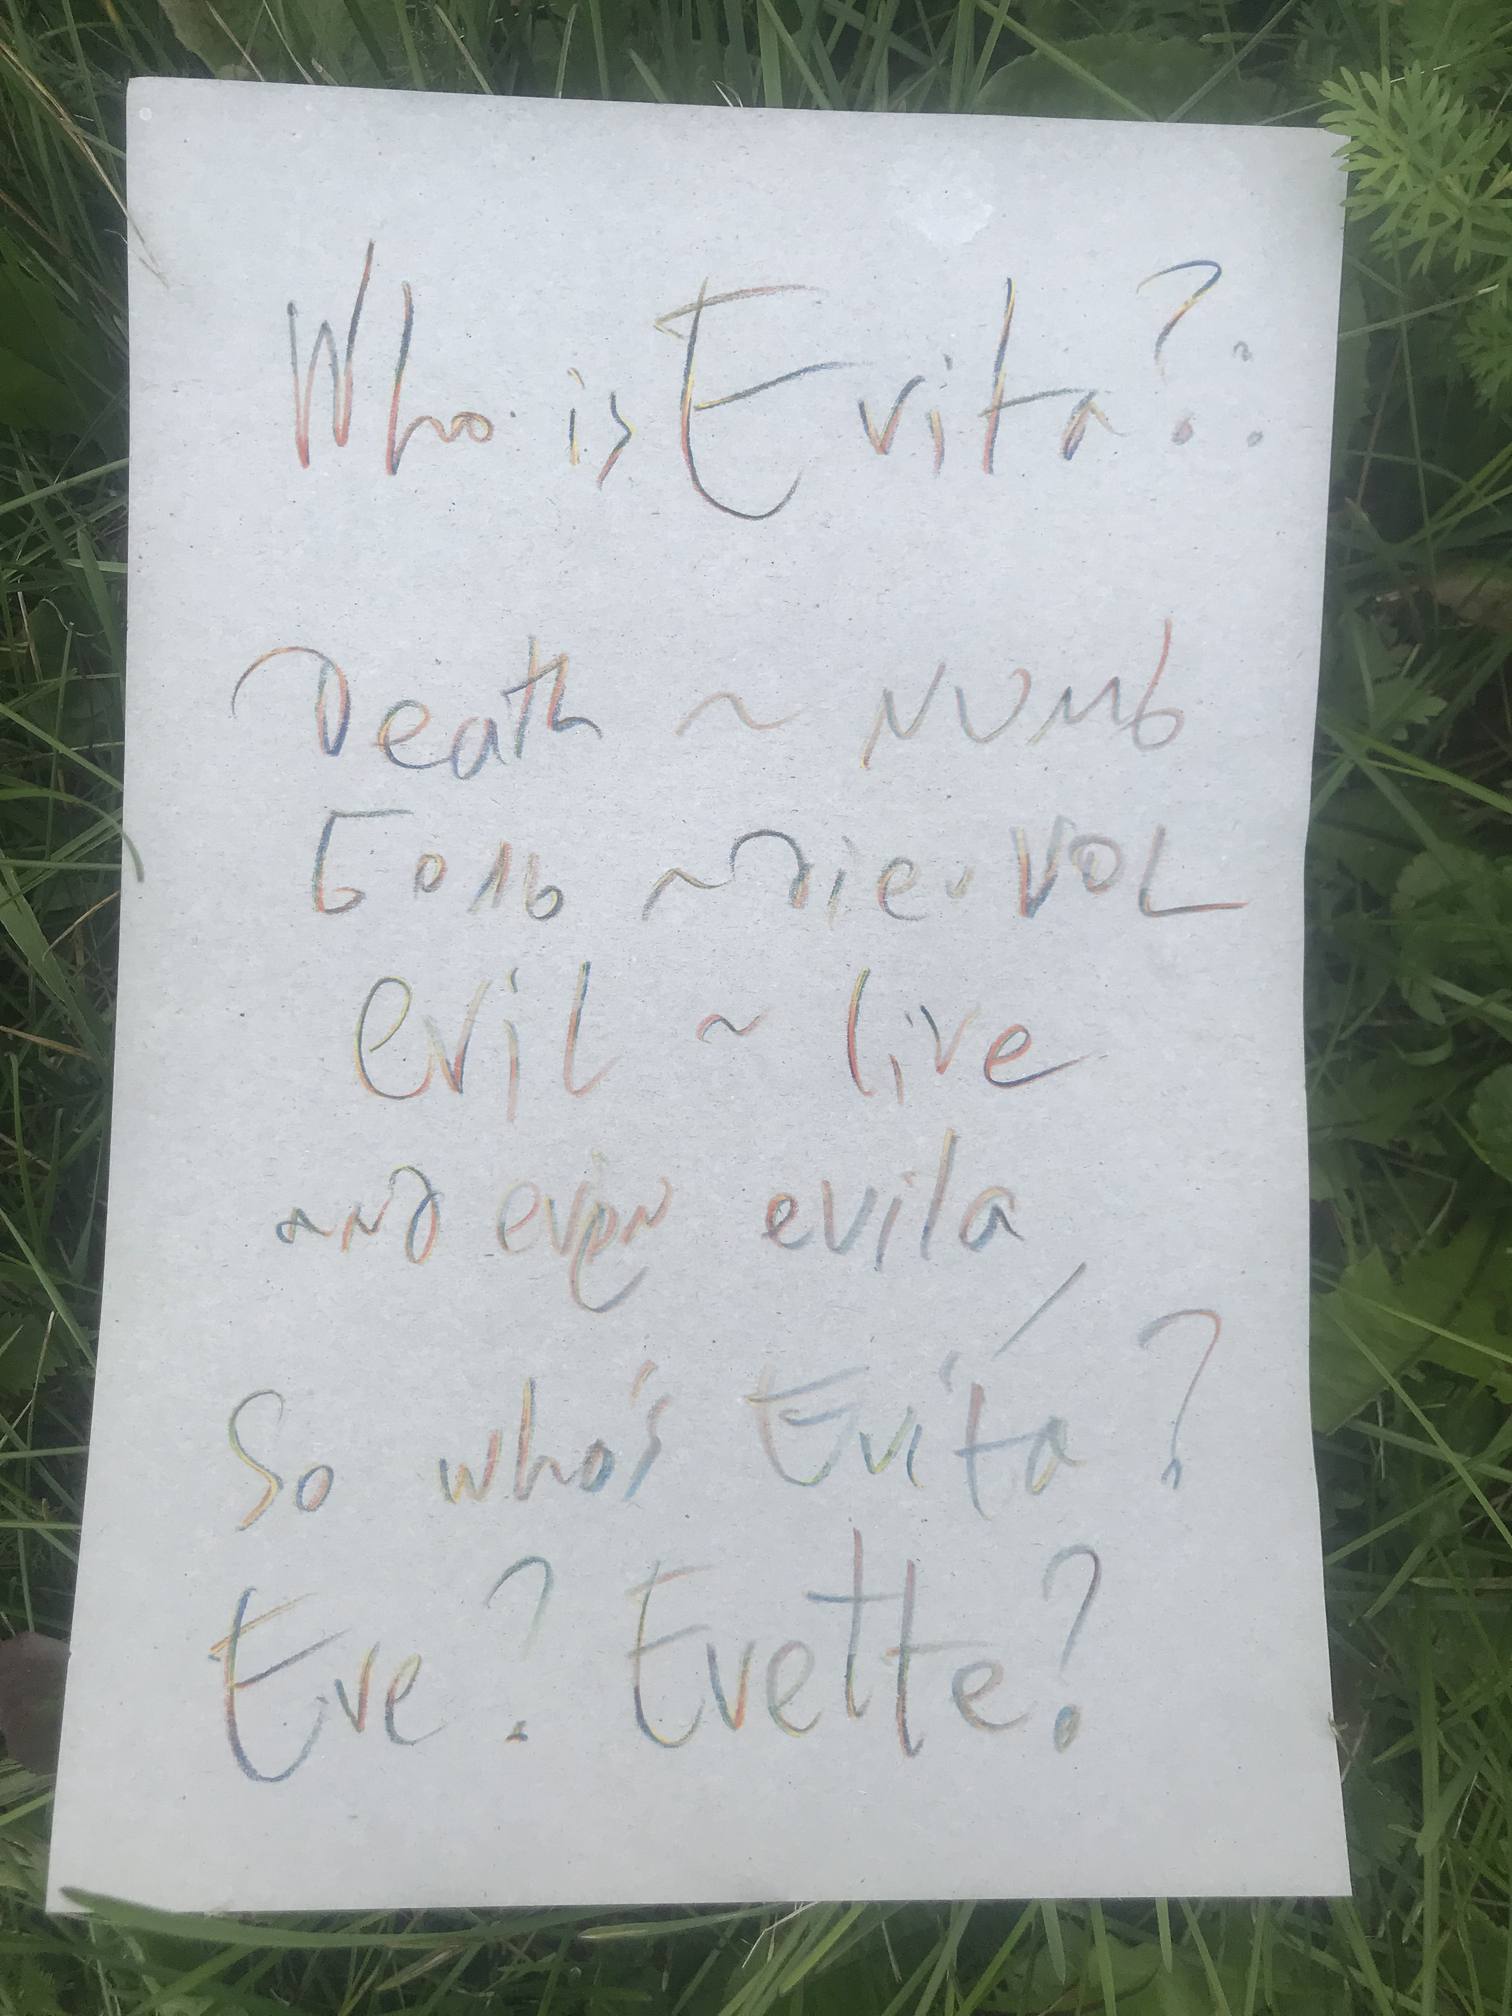 Who is Evita?:
Death ~ NUMB
боль ~ VOL
evil ~ live
and even evila
So who's Evita?
Eve? Evette?